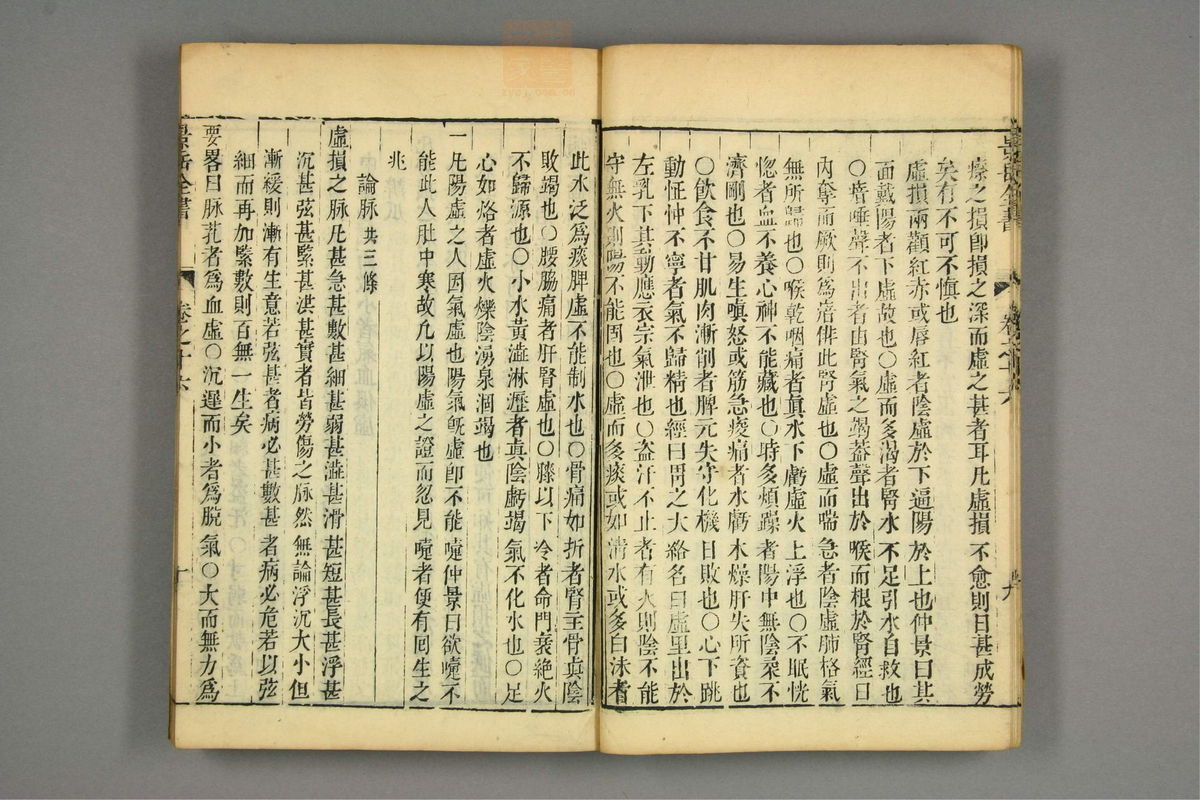 景岳全書
卷之十六
九
療之損卽損之深而虛之甚者耳凡虛損不愈則日甚成勞
矣有不可不愼也
虛損兩顴紅赤或唇紅者陰虛於下逼陽於上也仲景曰其
面戴陽者下虛故也○虛而多渴者腎水不足引水自救也
○瘖瘂聲不出者由腎氣之竭葢聲出於喉而根於腎經曰
內奪而厥則爲瘖俳此腎虛也○虛而喘急者陰虛肺格氣
無所歸也○喉乾咽痛者眞水下虧虛火上浮也○不眠恍
惚者血不養心神不能藏也○時多煩躁者陽中無陰柔不
濟剛也○易生嗔怒或筋急痠痛者水虧木燥肝失所資也
○飲食不甘肌肉漸削者脾元失守化機日敗也○心下跳
動怔忡不寧者氣不歸精也經曰胃之大絡名曰虛里出於
左乳下其動應衣宗氣泄也○盜汗不止者有火則陰不能
守無火則陽不能固也○虛而多痰或如清水或多白沫者
此水泛爲痰脾虛不能制水也○骨痛如折者腎主骨眞陰
敗竭也○腰脇痛者肝腎虛也○膝以下冷者命門衰絶火
不歸源也○小水黃澁淋瀝者眞陰虧竭氣不化水也○足
心如烙者虛火爍陰湧泉涸竭也
一凡陽虛之人因氣虛也陽氣旣虛卽不能嚏仲景曰欲嚏不
能此人肚中寒故凡以陽虛之證而忽見嚏者便有回生之
兆
論脉 共三條
虛損之脉凡甚急甚數甚細甚弱甚澁甚滑甚短甚長甚浮甚
沉甚弦甚緊甚洪甚實者皆勞傷之脉然無論浮沉大小但
漸緩則漸有生意若弦甚者病必甚數甚者病必危若以弦
細而再加緊數則百無一生矣
要畧曰脉芤者爲血虛○沉遲而小者爲脫氣○大而無力爲
景岳全書
卷之十六
十